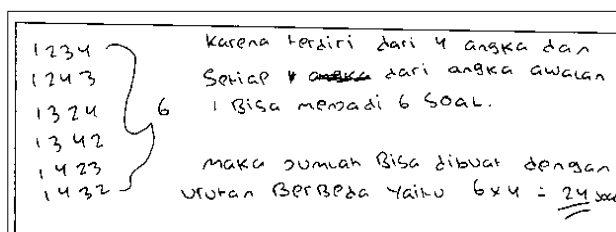 1234
1243
1324
1342
1423
1432
6
Karena terdiri dari 4 angka dan
Setiap dari angka awalan
1 Bisa menjadi 6 SOAL.
maka Jumlah Bisa dibuat dengan
urutan BerBeda Yaitu 6x4 = 24 soal